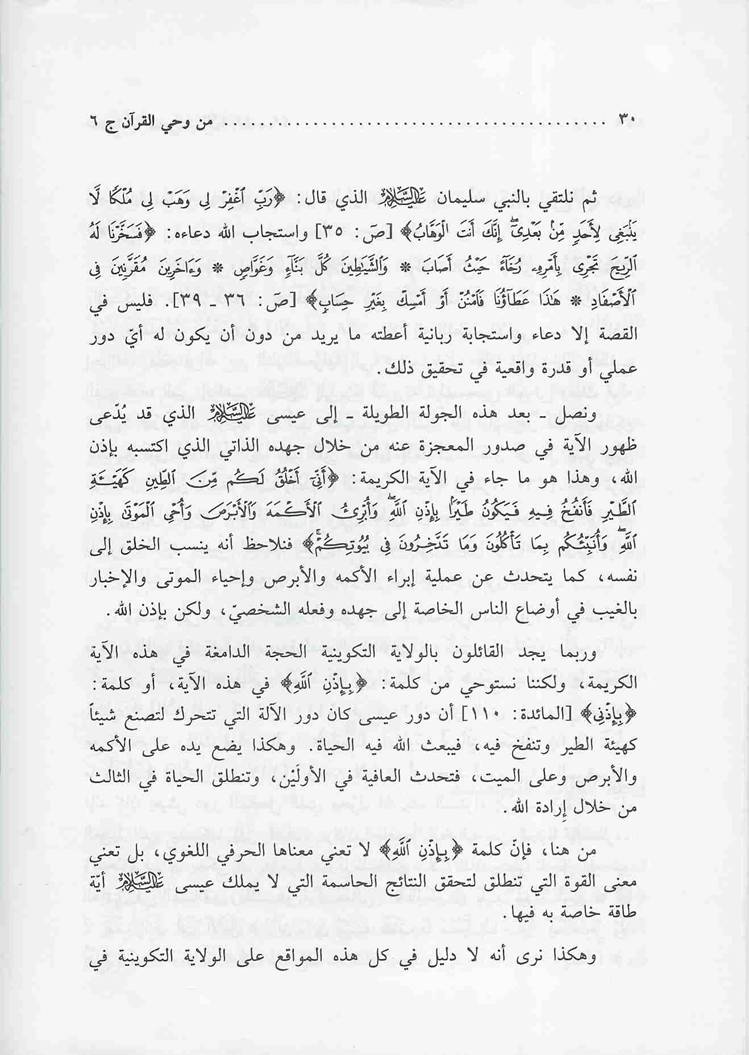 ٣٠ ........................................ من وحي القرآن ج ٦
ثم نلتقي بالنبي سليمان عليه السلام الذي قال: ﴿رَبِّ ٱغْفِرْ لِى وَهَبْ لِى مُلْكًا لَّا
يَنۢبَغِى لِأَحَدٍ مِّنۢ بَعْدِىٓ إِنَّكَ أَنتَ ٱلْوَهَّابُ﴾ [صۤ: ٣٥] واستجاب الله دعاءه: ﴿فَسَخَّرْنَا لَهُ
ٱلرِّيحَ تَجْرِى بِأَمْرِهِۦ رُخَآءً حَيْثُ أَصَابَ * وَٱلشَّيَٰطِينَ كُلَّ بَنَّآءٍ وَغَوَّاصٍ * وَءَاخَرِينَ مُقَرَّنِينَ فِى
ٱلْأَصْفَادِ * هَٰذَا عَطَآؤُنَا فَٱمْنُنْ أَوْ أَمْسِكْ بِغَيْرِ حِسَابٍ﴾ [صۤ: ٣٦ ـ ٣٩]. فليس في
القصة إلا دعاء واستجابة ربانية أعطته ما يريد من دون أن يكون له أيّ دور
عملي أو قدرة واقعية في تحقيق ذلك.
ونصل ـ بعد هذه الجولة الطويلة ـ إلى عيسى عليه السلام الذي قد يُدّعى
ظهور الآية في صدور المعجزة عنه من خلال جهده الذاتي الذي اكتسبه بإذن
الله، وهذا هو ما جاء في الآية الكريمة: ﴿أَنِّىٓ أَخْلُقُ لَكُم مِّنَ ٱلطِّينِ كَهَيْـَٔةِ
ٱلطَّيْرِ فَأَنفُخُ فِيهِ فَيَكُونُ طَيْرًۢا بِإِذْنِ ٱللَّهِ وَأُبْرِئُ ٱلْأَكْمَهَ وَٱلْأَبْرَصَ وَأُحْىِ ٱلْمَوْتَىٰ بِإِذْنِ
ٱللَّهِ وَأُنَبِّئُكُم بِمَا تَأْكُلُونَ وَمَا تَدَّخِرُونَ فِى بُيُوتِكُمْ﴾ فنلاحظ أنه ينسب الخلق إلى
نفسه، كما يتحدث عن عملية إبراء الأكمه والأبرص وإحياء الموتى والإخبار
بالغيب في أوضاع الناس الخاصة إلى جهده وفعله الشخصيّ، ولكن بإذن الله.
وربما يجد القائلون بالولاية التكوينية الحجة الدامغة في هذه الآية
الكريمة، ولكننا نستوحي من كلمة: ﴿بِإِذْنِ ٱللَّهِ﴾ في هذه الآية، أو كلمة:
﴿بِإِذْنِى﴾ [المائدة: ١١٠] أن دور عيسى كان دور الآلة التي تتحرك لتصنع شيئاً
كهيئة الطير وتنفخ فيه، فيبعث الله فيه الحياة. وهكذا يضع يده على الأكمه
والأبرص وعلى الميت، فتحدث العافية في الأولَيْن، وتنطلق الحياة في الثالث
من خلال إرادة الله.
من هنا، فإنّ كلمة ﴿بِإِذْنِ ٱللَّهِ﴾ لا تعني معناها الحرفي اللغوي، بل تعني
معنى القوة التي تنطلق لتحقق النتائج الحاسمة التي لا يملك عيسى عليه السلام أيّة
طاقة خاصة به فيها.
وهكذا نرى أنه لا دليل في كل هذه المواقع على الولاية التكوينية في